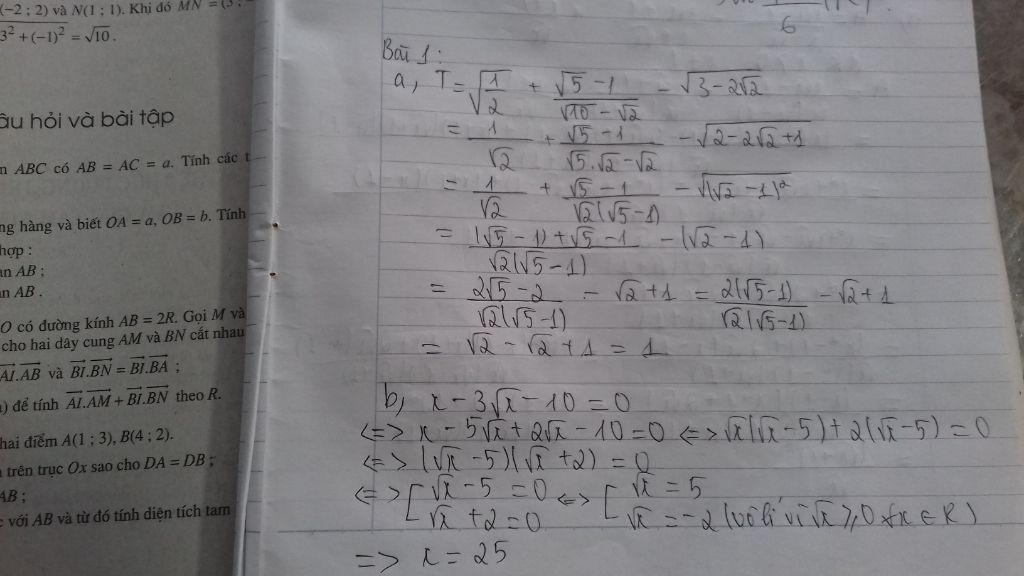 (−2 ; 2) và N(1 ; 1). Khi đó MN = (3 ;
3² + (−1)² = √10.
âu hỏi và bài tập
n ABC có AB = AC = a. Tính các t
ng hàng và biết OA = a, OB = b. Tính
hợp :
n AB ;
n AB .
O có đường kính AB = 2R. Gọi M và
cho hai dây cung AM và BN cắt nhau
AI.AB và BI.BN = BI.BA ;
) để tính AI.AM + BI.BN theo R.
hai điểm A(1 ; 3), B(4 ; 2).
trên trục Ox sao cho DA = DB ;
AB ;
với AB và từ đó tính diện tích tam
6
Bài 1:
a, T = √(1/2) + (√5 − 1)/(√10 − √2) − √(3 − 2√2)
= 1/√2 + (√5 − 1)/(√5.√2 − √2) − √(2 − 2√2 + 1)
= 1/√2 + (√5 − 1)/(√2(√5 − 1)) − √((√2 − 1)²)
= ((√5 − 1) + √5 − 1)/(√2(√5 − 1)) − (√2 − 1)
= (2√5 − 2)/(√2(√5 − 1)) − √2 + 1 = 2(√5 − 1)/(√2(√5 − 1)) − √2 + 1
= √2 − √2 + 1 = 1
b, x − 3√x − 10 = 0
<=> x − 5√x + 2√x − 10 = 0 <=> √x(√x − 5) + 2(√x − 5) = 0
<=> (√x − 5)(√x + 2) = 0
<=> [ √x − 5 = 0 <=> [ √x = 5
√x + 2 = 0 √x = −2 (vô lí vì √x ⩾ 0 ∀x ∈ R)
=> x = 25